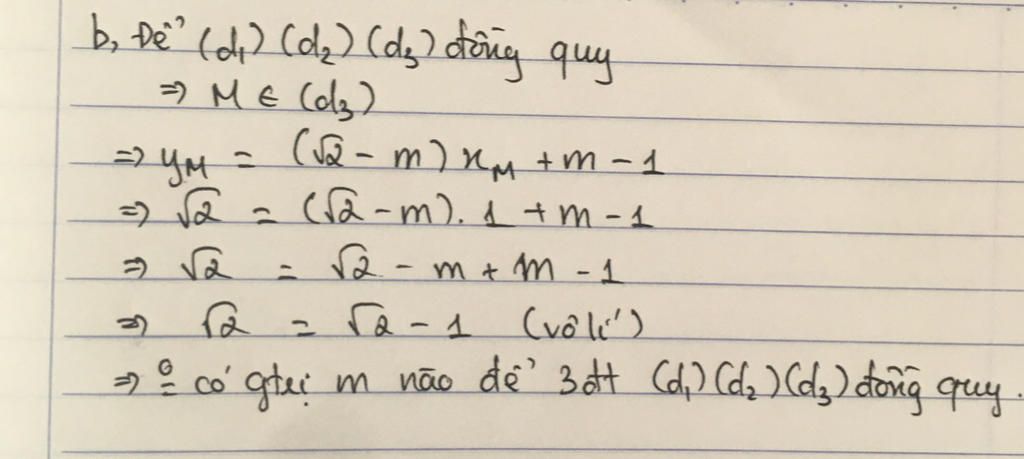 b, Để (d₁) (d₂) (d₃) đồng quy
⇒ M ∈ (d₃)
⇒ yM = (√2 - m) xM + m - 1
⇒ √2 = (√2 - m). 1 + m - 1
⇒ √2 = √2 - m + m - 1
⇒ √2 = √2 - 1 (vô lí)
⇒ có gtrị m nào để 3 đt (d₁) (d₂) (d₃) đồng quy.